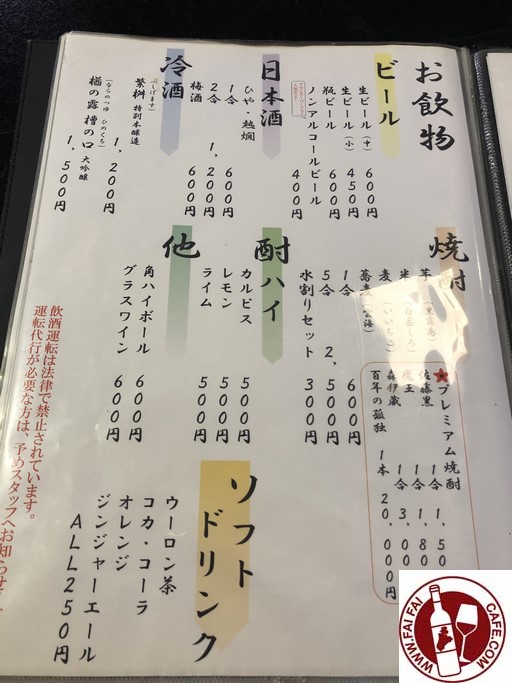 お飲物
ビール
生ビール(中) 600円
生ビール(小) 450円
瓶ビール 600円
ノンアルコールビール 400円
日本酒
ひや・熱燗
1合 600円
2合 1,200円
梅酒 600円
冷酒
(しげます)
繁桝 特別本醸造 1,200円
(ならのつゆ ひのくち)
楢の露 槽の口 大吟醸 1,500円
焼酎
芋(黒霧島)
米(白岳しろ)
麦(いいちこ)
蕎麦(雲海)
1合 600円
5合 2,500円
水割りセット 300円
★プレミアム焼酎
佐藤黒 1合 1,50
魔王 1合 1,80
森伊蔵 1合 3,000円
百年の孤独 1本 20,000円
酎ハイ
カルピス 500円
レモン 500円
ライム 500円
他
角ハイボール 600円
グラスワイン 600円
ソフトドリンク
ウーロン茶
コカ・コーラ
オレンジ
ジンジャーエール
ALL250円
飲酒運転は法律で禁止されています。
運転代行が必要な方は、予めスタッフへお知らせ
WWW.FAI FAI CAFE.COM